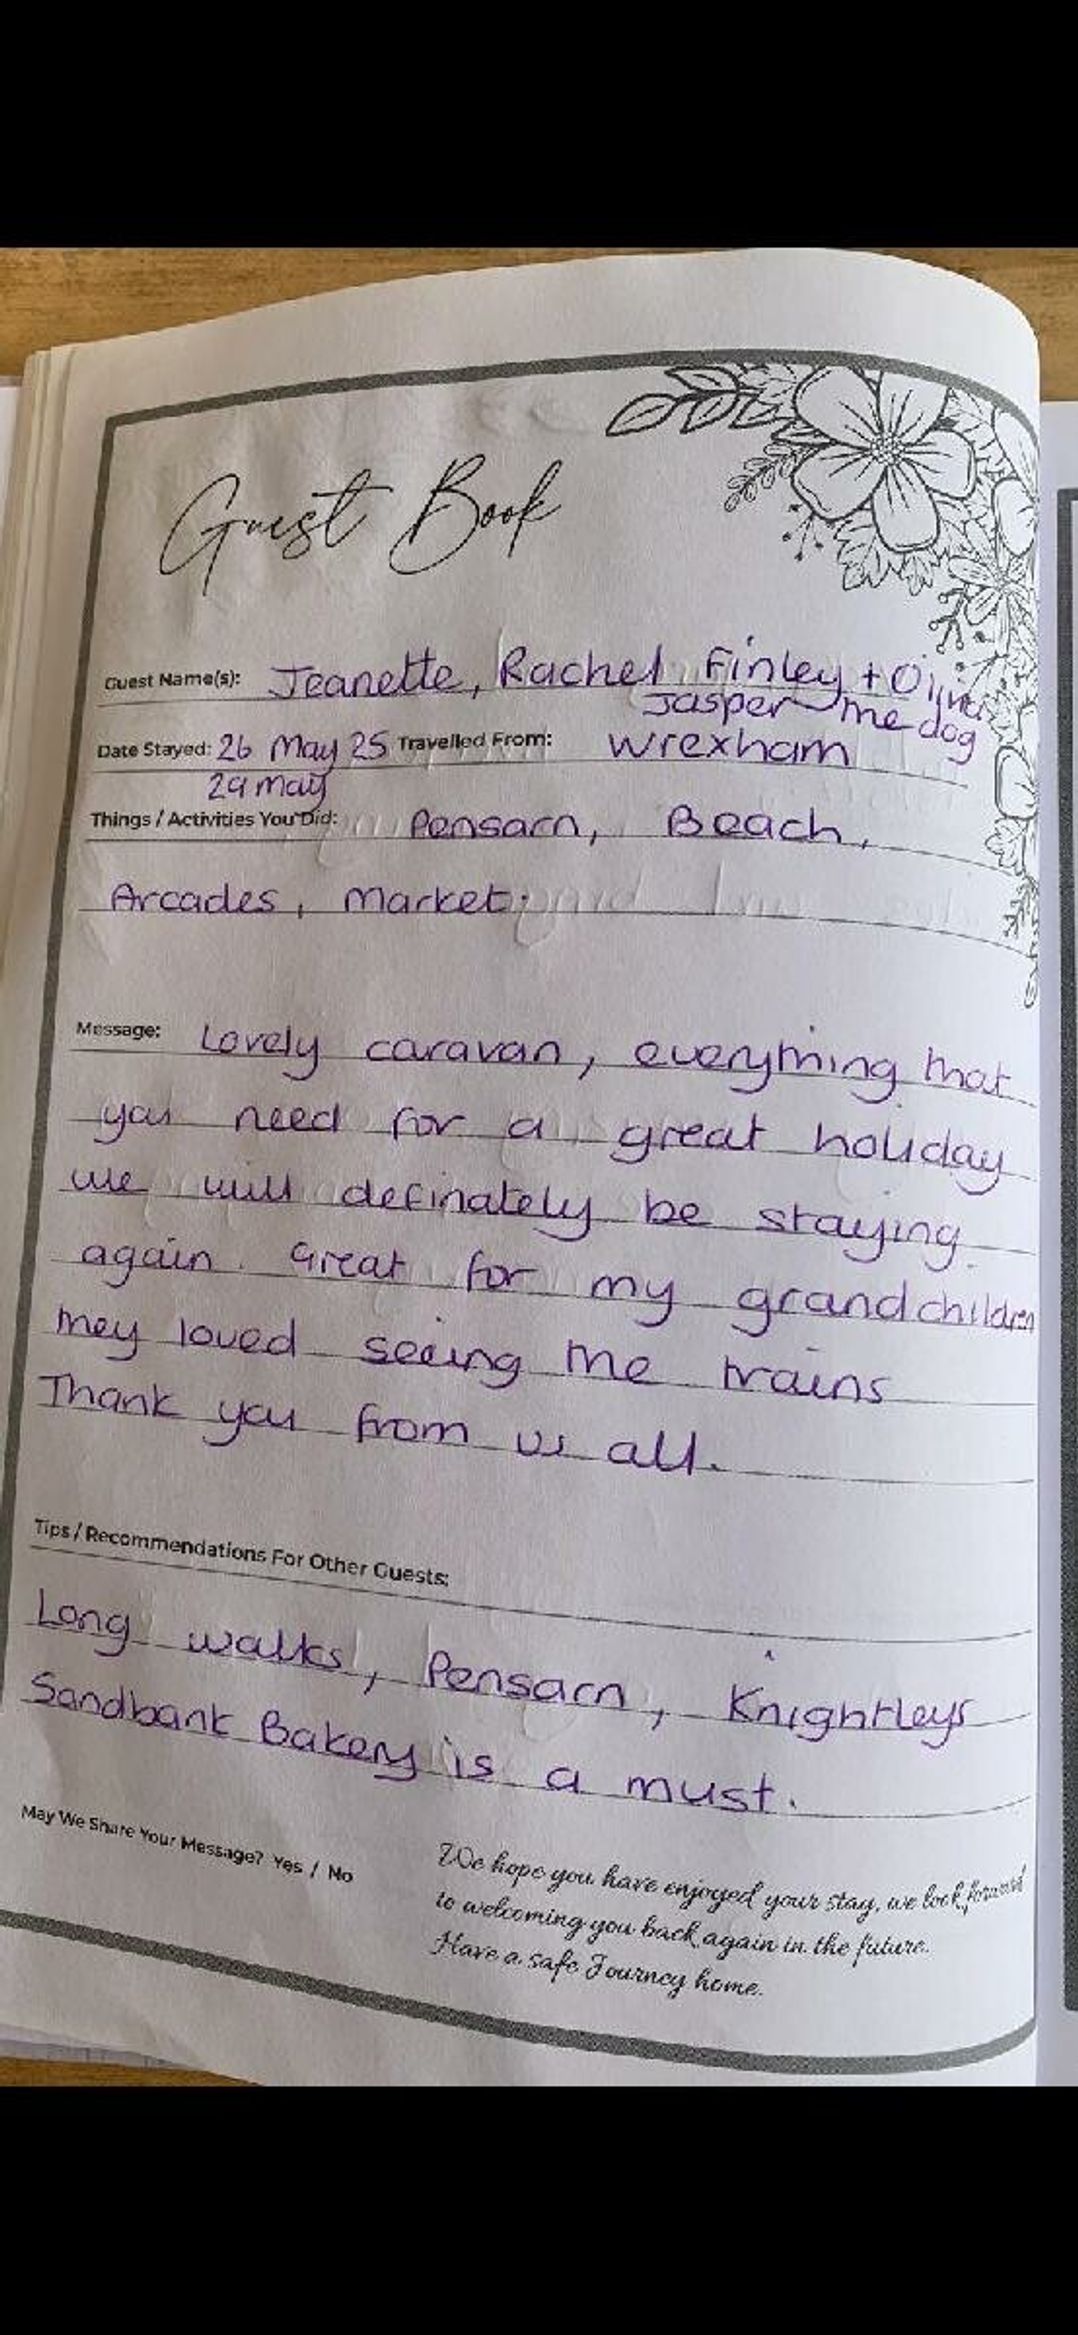 Guest Book
Guest Name(s): Jeanette, Rachel Finley + Oliver
Jasper the dog
Date Stayed: 26 May 25 Travelled From: Wrexham
29 May
Things / Activities You Did: Pensarn, Beach,
Arcades, Market.
Message: Lovely caravan, everything that
you need for a great holiday
we will definately be staying
again. Great for my grandchildren
they loved seeing the trains
Thank you from us all.
Tips / Recommendations For Other Guests:
Long walks, Pensarn, Knightleys
Sandbank Bakery is a must.
May We Share Your Message? Yes / No
We hope you have enjoyed your stay, we look forward
to welcoming you back again in the future.
Have a safe Journey home.